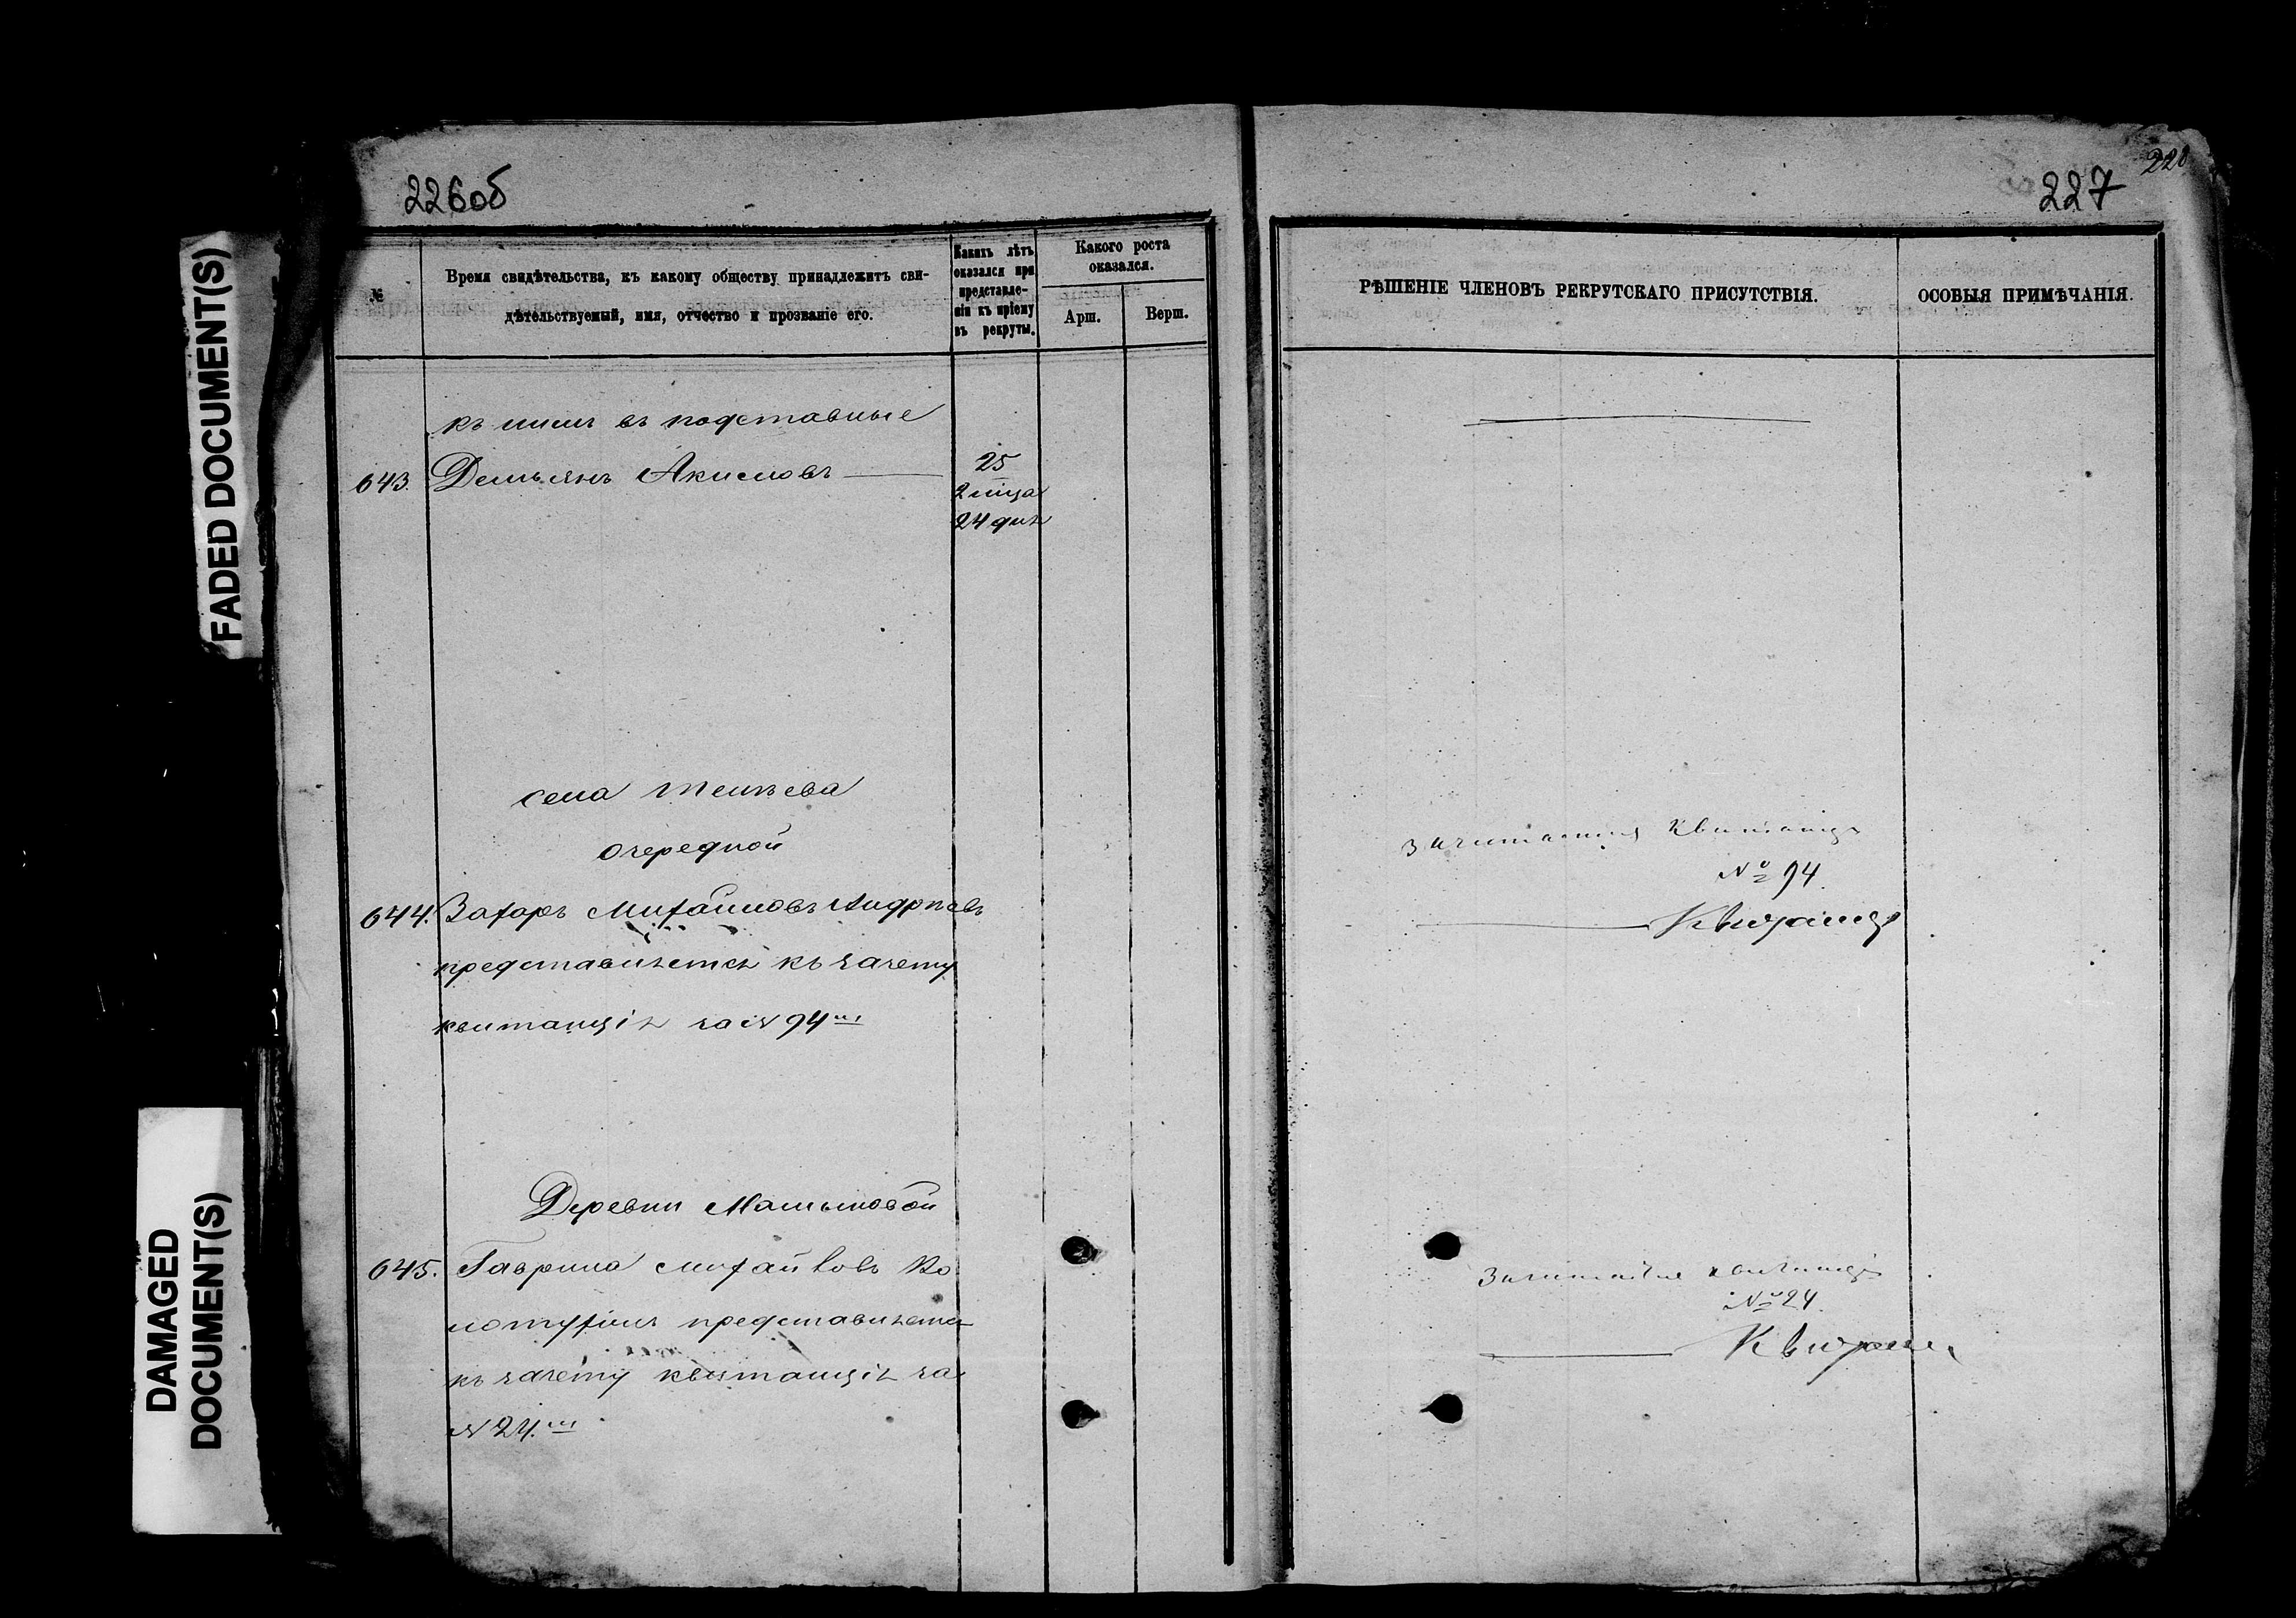 FADED DOCUMENT(S)
DAMAGED
DOCUMENT(S)
226об
№
Время свидѣтельства, къ какому обществу принадлежитъ сви-
дѣтельствуемый, имя, отчество и прозваніе его.
Какихъ лѣтъ
оказался при
представле-
ніи къ пріему
въ рекруты.
Какого роста
оказался.
Арш.
Верш.
къ нимъ въ подставные
643. Демьянъ Акимовъ
25
2 мца
24 дня
села
очередной
644. Захаръ Михайловъ Андреевъ
представляетъ къ зачету
квитанцію за № 94мъ
Деревни
645. Гаврило Михайловъ Ко
лотухинъ представляетъ
къ зачету квитанцію за
№ 24.мъ
227
228
РѢШЕНІЕ ЧЛЕНОВЪ РЕКРУТСКАГО ПРИСУТСТВІЯ.
ОСОБЫЯ ПРИМѢЧАНІЯ.
№ 94.
№ 24.